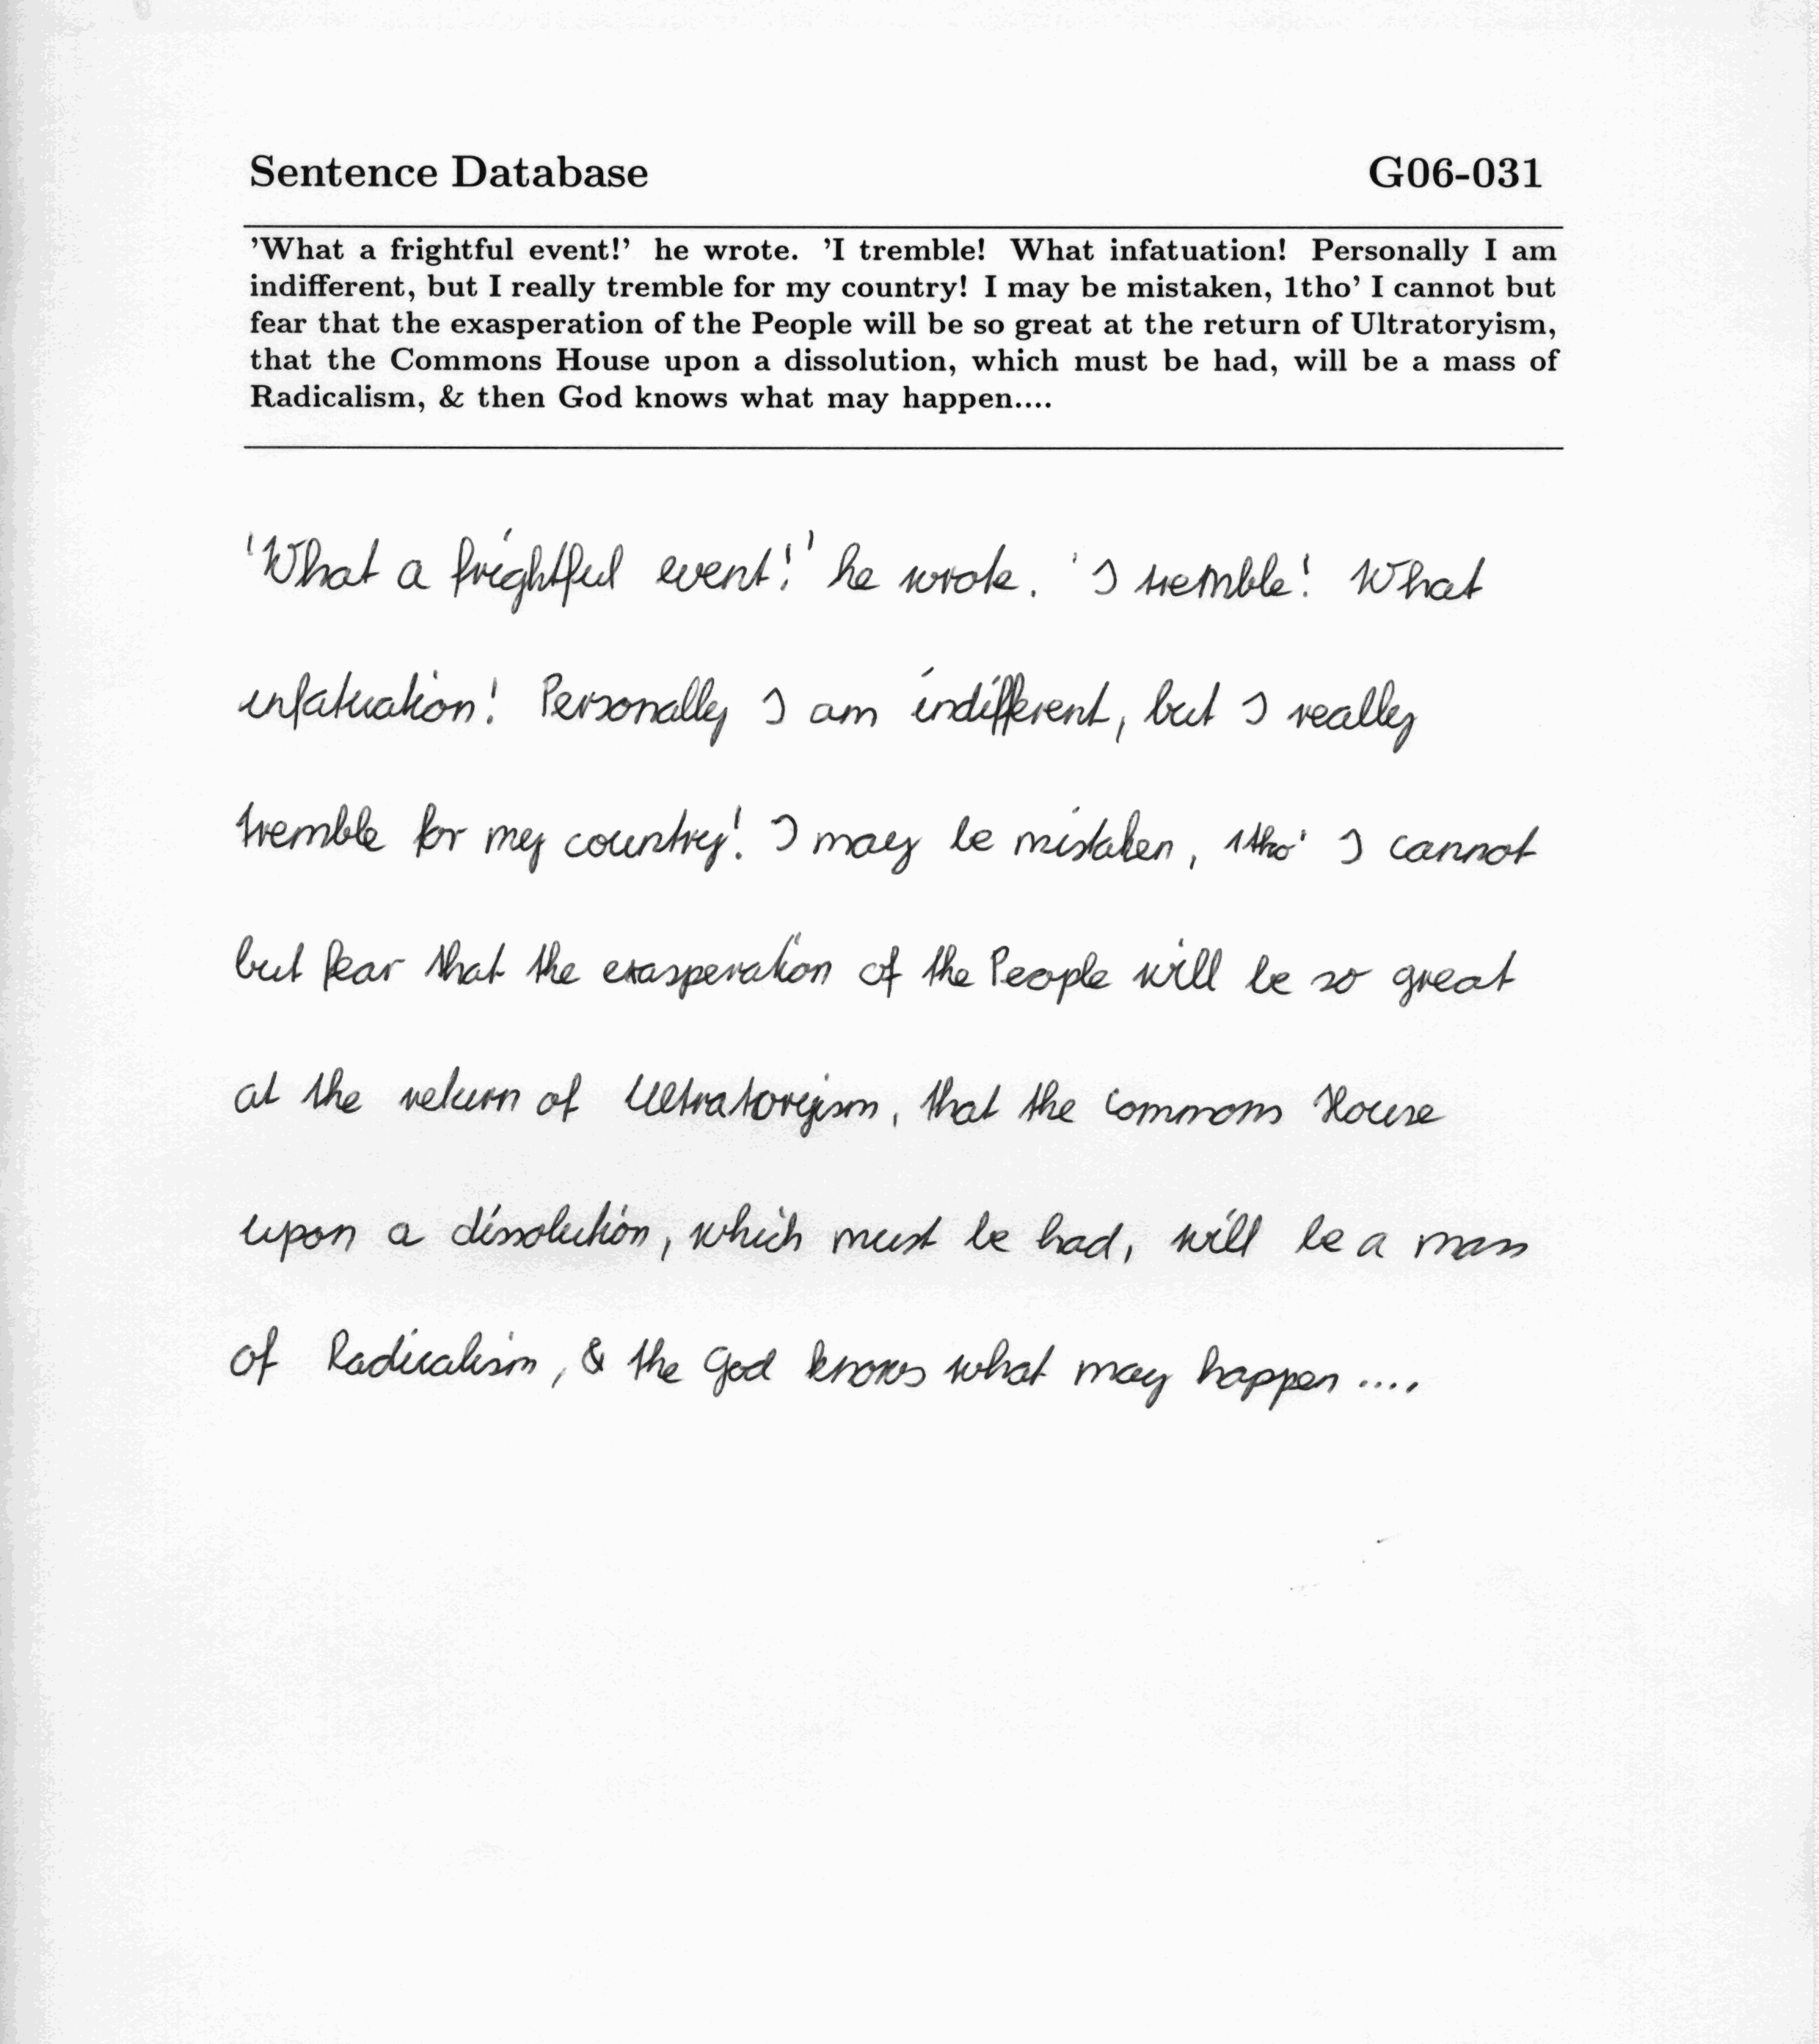 Sentence Database G06-031
'What a frightful event!' he wrote. 'I tremble! What infatuation! Personally I am
indifferent, but I really tremble for my country! I may be mistaken, 1tho' I cannot but
fear that the exasperation of the People will be so great at the return of Ultratoryism,
that the Commons House upon a dissolution, which must be had, will be a mass of
Radicalism, & then God knows what may happen....
'What a frightful event!' he wrote. 'I tremble! What
infatuation! Personally I am indifferent, but I really
tremble for my country! I may be mistaken, 1tho' I cannot
but fear that the exasperation of the People will be so great
at the return of Ultratoryism, that the Commons House
upon a dissolution, which must be had, will be a mass
of Radicalism, & the God knows what may happen ....